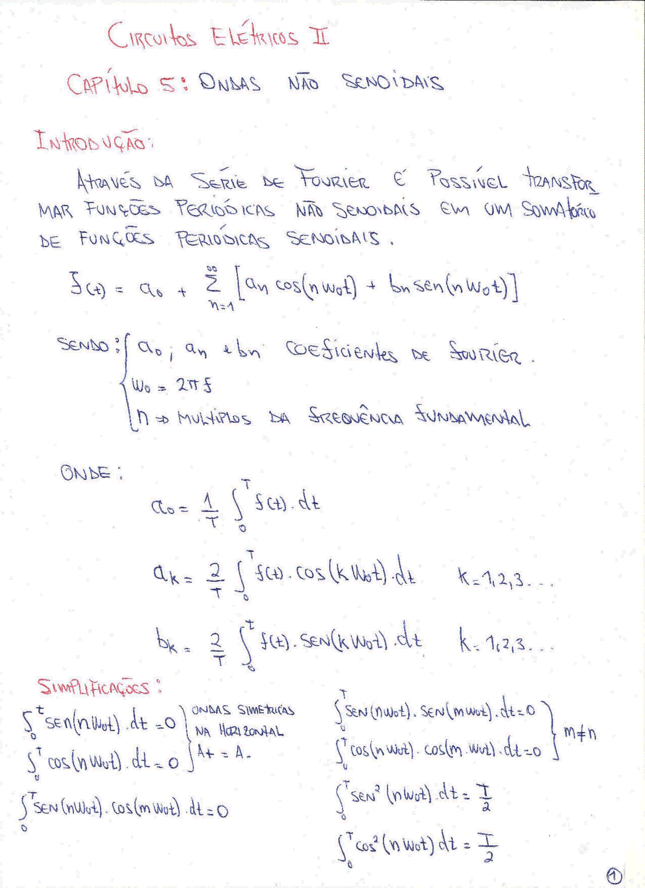 CIRCUITOS ELÉTRICOS II
CAPÍTULO 5: ONDAS NÃO SENOIDAIS
INTRODUÇÃO:
ATRAVÉS DA SÉRIE DE FOURIER É POSSÍVEL TRANSFOR
MAR FUNÇÕES PERIÓDICAS NÃO SENOIDAIS EM UM SOMATÓRIO
DE FUNÇÕES PERIÓDICAS SENOIDAIS.
f(t) = a₀ + ∞ Σ n=1 [an cos(nω₀t) + bn sen(nω₀t)]
SENDO: { a₀, an e bn COEFICIENTES DE FOURIER.
ω₀ = 2πf
n ⇒ MULTIPLOS DA FREQUÊNCIA FUNDAMENTAL
ONDE:
a₀ = 1/T ∫₀ᵀ f(t).dt
aK = 2/T ∫₀ᵀ f(t).cos(kω₀t).dt K=1,2,3...
bK = 2/T ∫₀ᵀ f(t).SEN(kω₀t).dt K=1,2,3...
SIMPLIFICAÇÕES:
∫₀ᵗ sen(nω₀t).dt=0
∫₀ᵀ cos(nω₀t).dt=0
} ONDAS SIMÉTRICAS
NA HORIZONTAL
A+ = A-
∫₀ᵀ SEN(nω₀t).cos(mω₀t).dt=0
∫₀ᵀ SEN(nω₀t).SEN(mω₀t).dt=0
∫₀ᵀ cos(nω₀t).cos(m.ω₀t).dt=0
} m≠n
∫₀ᵀ SEN²(nω₀t).dt = T/2
∫₀ᵀ cos²(nω₀t)dt = T/2
1